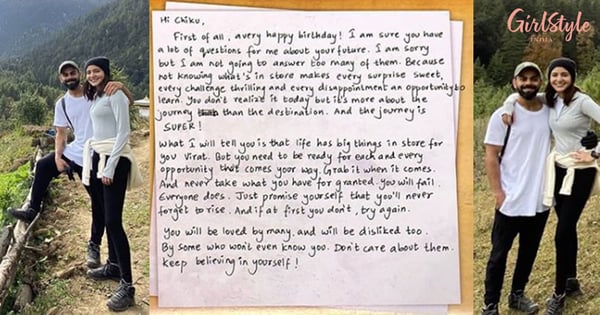 GirlStyle
INDIA
Hi Chiku,
First of all, a very happy birthday! I am sure you have
a lot of questions for me about your future. I am sorry
but I am not going to answer too many of them. Because
not knowing what's in store makes every surprise sweet,
every challenge thrilling and every disappointment an opportunity to
learn. You don't realize it today but it's more about the
journey than the destination. And the journey is
SUPER!
What I will tell you is that life has big things in store for
you Virat. But you need to be ready for each and every
opportunity that comes your way. Grab it when it comes.
And never take what you have for granted. You will fail.
Everyone does. Just promise yourself that you'll never
forget to rise. And if at first you don't, try again.
You will be loved by many, and will be disliked too.
By some who won't even know you. Don't care about them.
Keep believing in yourself!